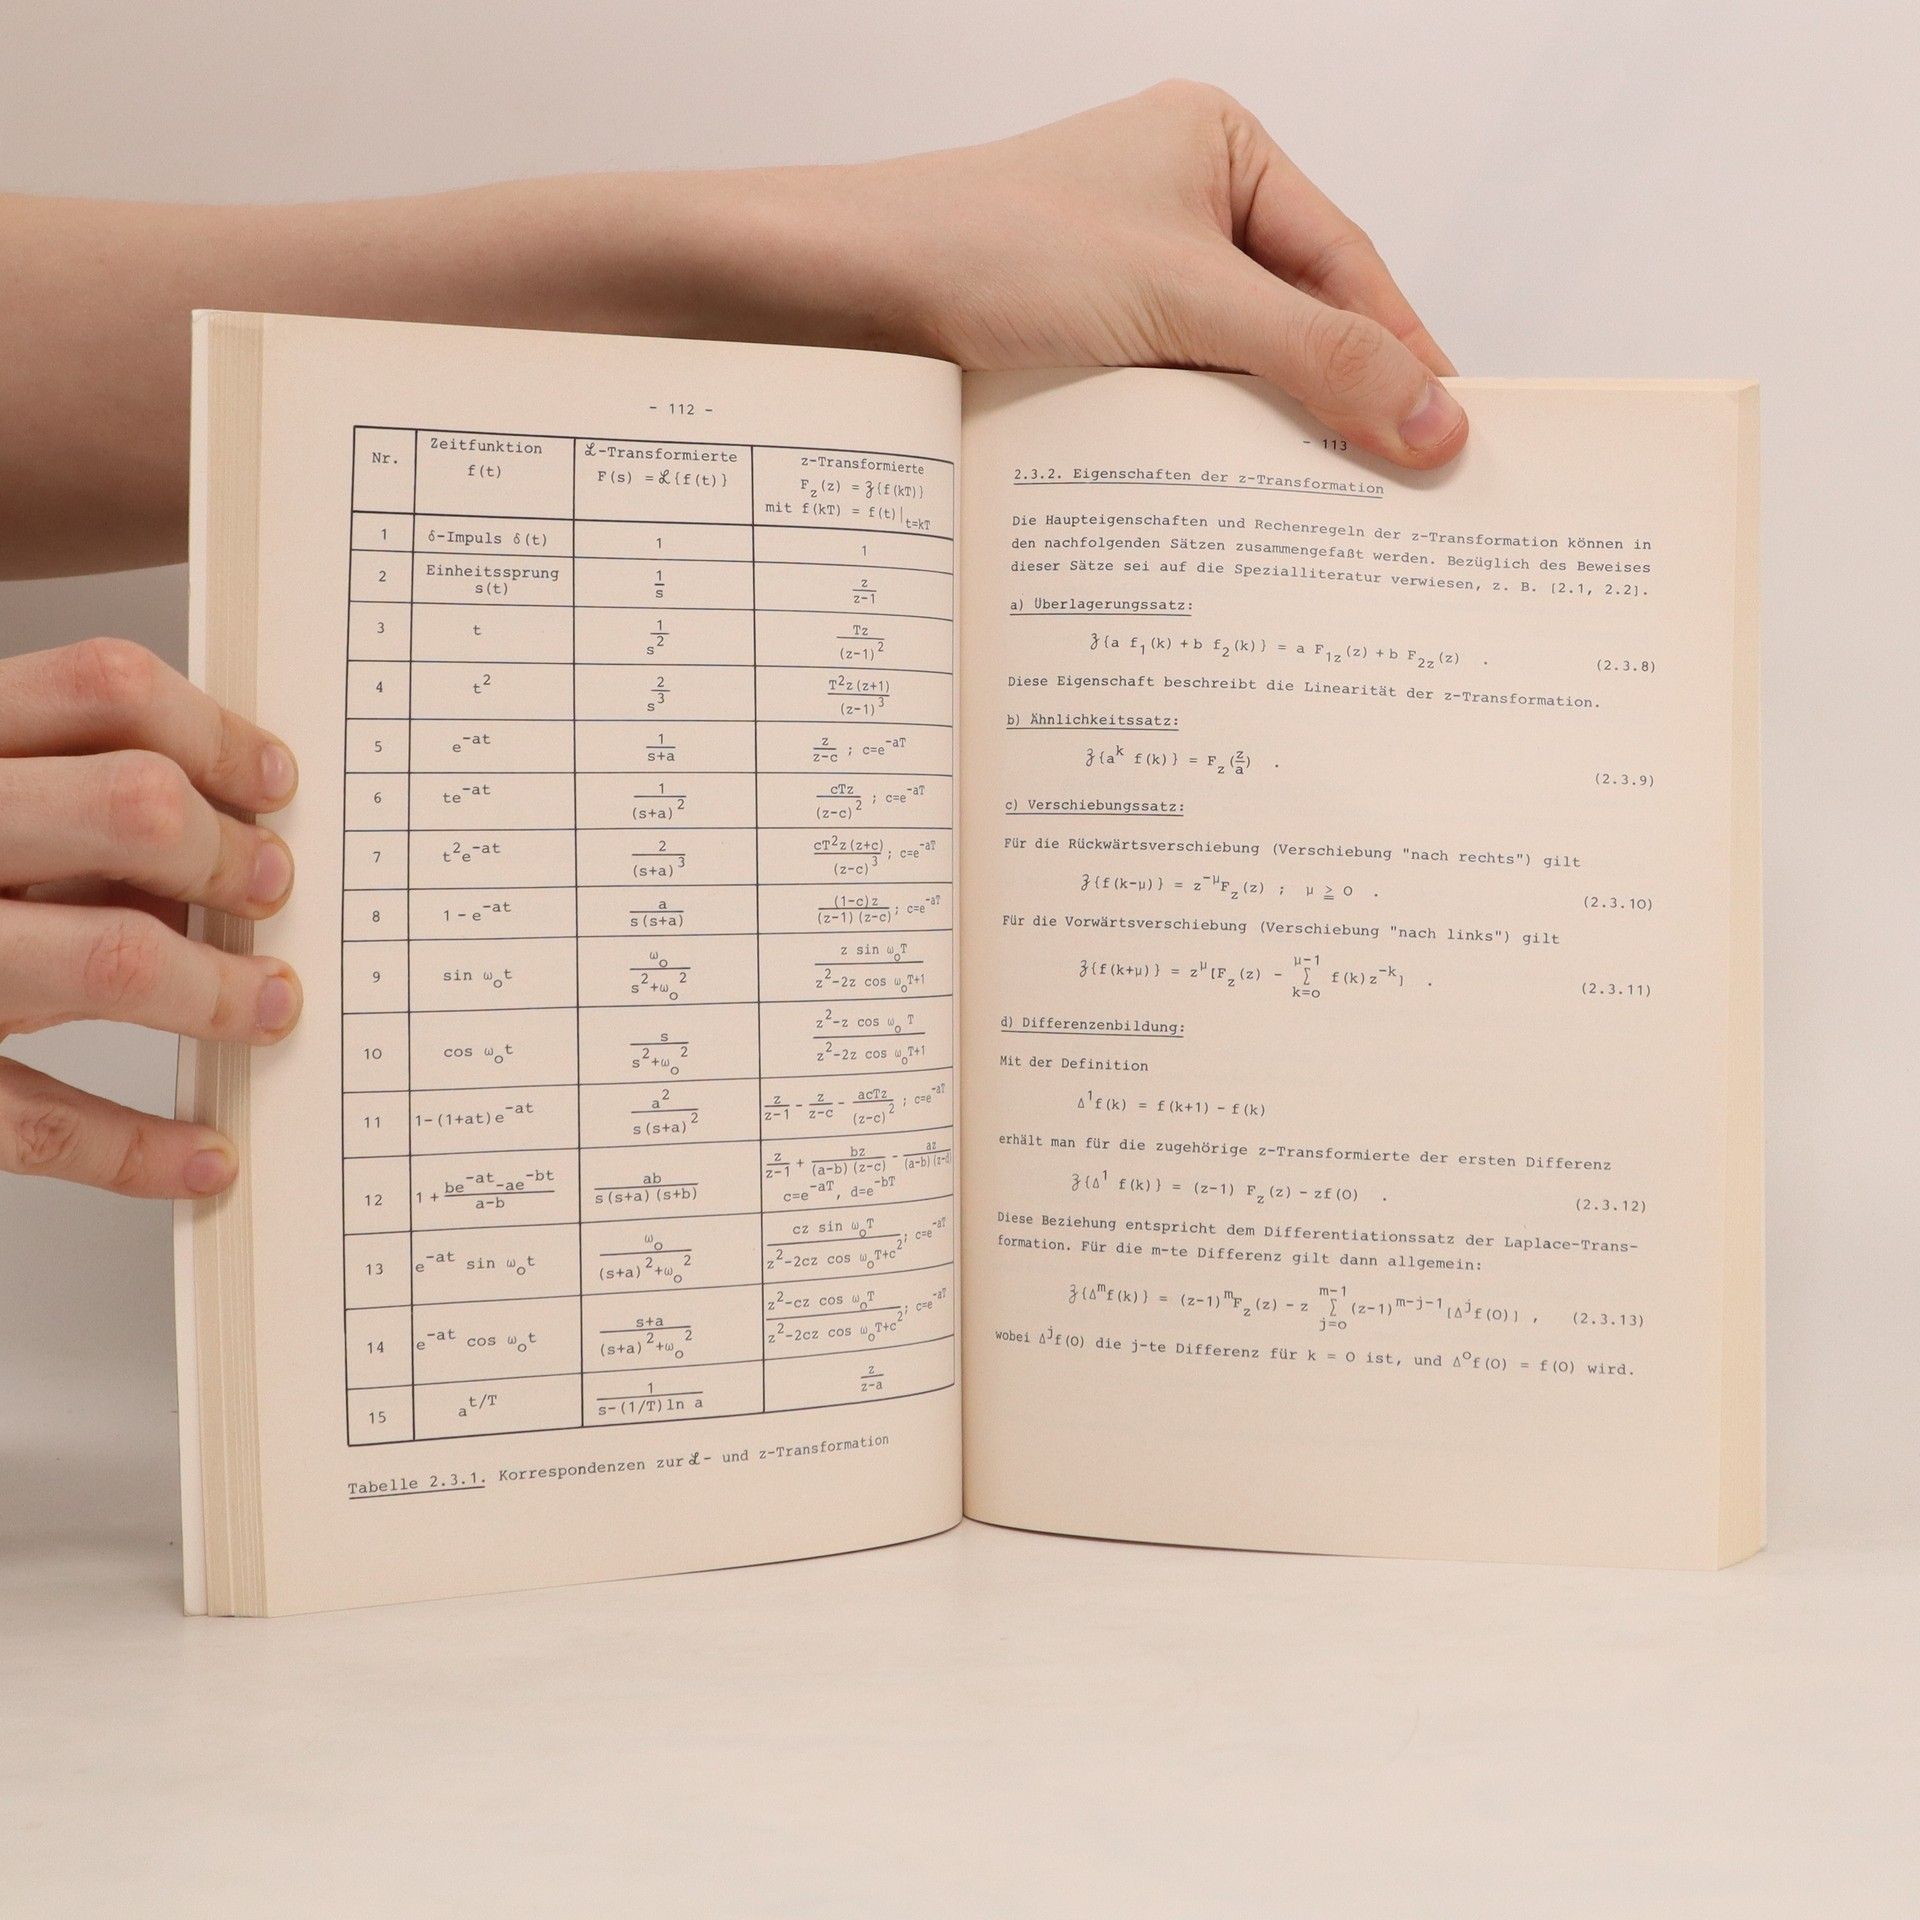 - 112 -
Nr. | Zeitfunktion f(t) | ℒ-Transformierte F(s) = ℒ{f(t)} | z-Transformierte F_z(z) = ʒ{f(kT)} mit f(kT) = f(t)|_{t=kT}
1 | δ-Impuls δ(t) | 1 | 1
2 | Einheitssprung s(t) | 1/s | z/(z-1)
3 | t | 1/s^2 | Tz/(z-1)^2
4 | t^2 | 2/s^3 | T^2z(z+1)/(z-1)^3
5 | e^-at | 1/(s+a) | z/(z-c) ; c=e^-aT
6 | te^-at | 1/(s+a)^2 | cTz/(z-c)^2 ; c=e^-aT
7 | t^2e^-at | 2/(s+a)^3 | cT^2z(z+c)/(z-c)^3 ; c=e^-aT
8 | 1-e^-at | a/(s(s+a)) | (1-c)z/((z-1)(z-c)) ; c=e^-aT
9 | sin ω_o t | ω_o/(s^2+ω_o^2) | z sin ω_o T/(z^2-2z cos ω_o T+1)
10 | cos ω_o t | s/(s^2+ω_o^2) | (z^2-z cos ω_o T)/(z^2-2z cos ω_o T+1)
11 | 1-(1+at)e^-at | a^2/(s(s+a)^2) | z/(z-1) - z/(z-c) - acTz/(z-c)^2 ; c=e^-aT
12 | 1 + (be^-at-ae^-bt)/(a-b) | ab/(s(s+a)(s+b)) | z/(z-1) + bz/((a-b)(z-c)) - az/((a-b)(z-d)) c=e^-aT, d=e^-bT
13 | e^-at sin ω_o t | ω_o/((s+a)^2+ω_o^2) | cz sin ω_o T/(z^2-2cz cos ω_o T+c^2) ; c=e^-aT
14 | e^-at cos ω_o t | (s+a)/((s+a)^2+ω_o^2) | (z^2-cz cos ω_o T)/(z^2-2cz cos ω_o T+c^2) ; c=e^-aT
15 | a^t/T | 1/(s-(1/T)ln a) | z/(z-a)
Tabelle 2.3.1. Korrespondenzen zur ℒ- und z-Transformation
- 113
2.3.2. Eigenschaften der z-Transformation
Die Haupteigenschaften und Rechenregeln der z-Transformation können in
den nachfolgenden Sätzen zusammengefaßt werden. Bezüglich des Beweises
dieser Sätze sei auf die Spezialliteratur verwiesen, z. B. [2.1, 2.2].
a) Überlagerungssatz:
ʒ{a f_1(k) + b f_2(k)} = a F_1z(z) + b F_2z(z) . (2.3.8)
Diese Eigenschaft beschreibt die Linearität der z-Transformation.
b) Ähnlichkeitssatz:
ʒ{a^k f(k)} = F_z(z/a) . (2.3.9)
c) Verschiebungssatz:
Für die Rückwärtsverschiebung (Verschiebung "nach rechts") gilt
ʒ{f(k-μ)} = z^-μ F_z(z) ; μ ≧ 0 . (2.3.10)
Für die Vorwärtsverschiebung (Verschiebung "nach links") gilt
ʒ{f(k+μ)} = z^μ [F_z(z) - Σ_{k=0}^{μ-1} f(k)z^-k] . (2.3.11)
d) Differenzenbildung:
Mit der Definition
Δ^1 f(k) = f(k+1) - f(k)
erhält man für die zugehörige z-Transformierte der ersten Differenz
ʒ{Δ^1 f(k)} = (z-1) F_z(z) - zf(0) . (2.3.12)
Diese Beziehung entspricht dem Differentiationssatz der Laplace-Trans-
formation. Für die m-te Differenz gilt dann allgemein:
ʒ{Δ^m f(k)} = (z-1)^m F_z(z) - z Σ_{j=0}^{m-1} (z-1)^{m-j-1} [Δ^j f(0)] , (2.3.13)
wobei Δ^j f(0) die j-te Differenz für k = 0 ist, und Δ^0 f(0) = f(0) wird.